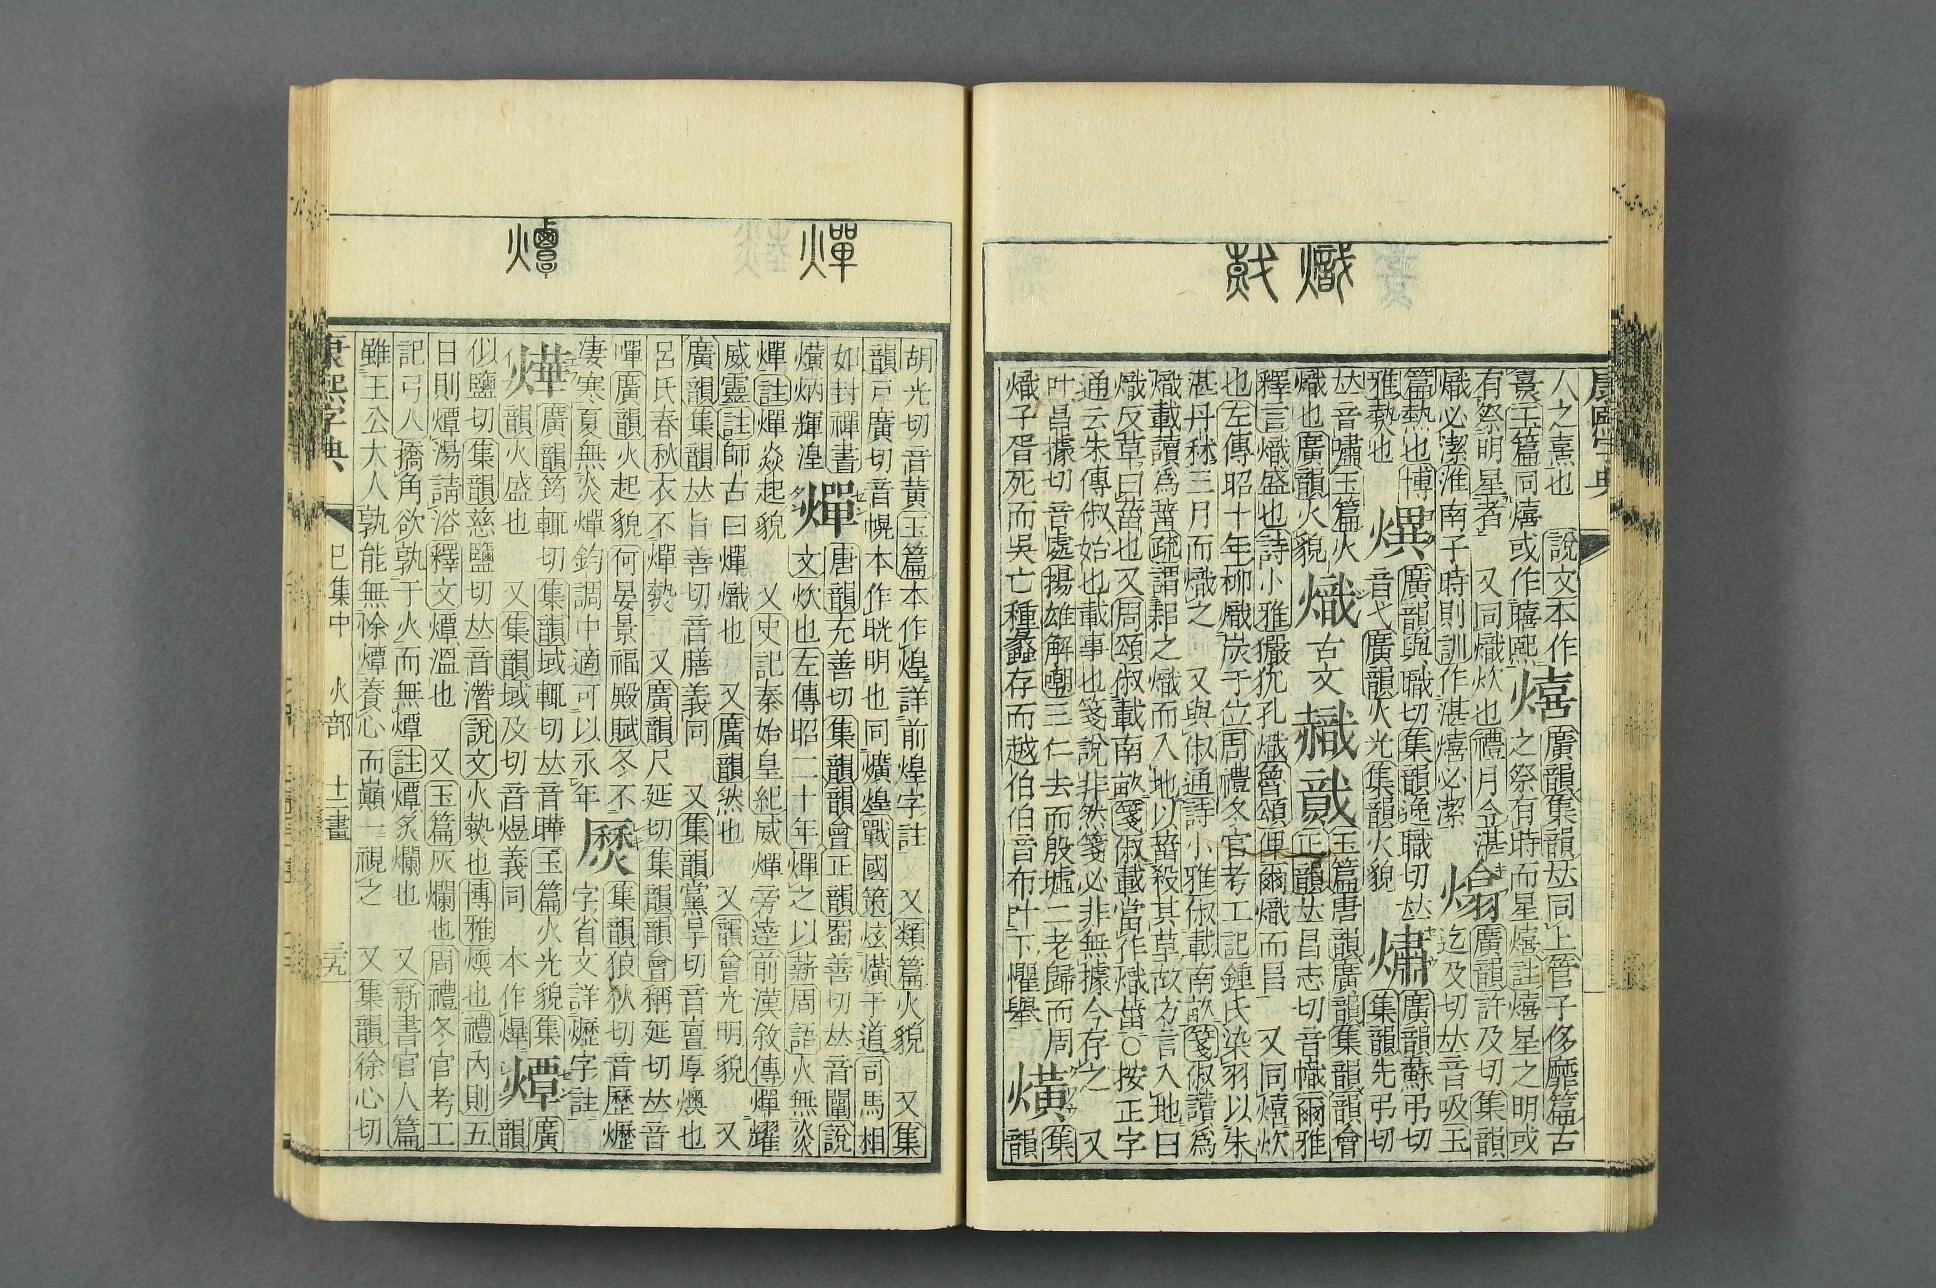 熾
康熙字典
人之熹也 說文本作熺廣韻集韻𠀤同上管子侈靡篇古
熹玉篇同熺或作暿熙 之祭有時而星熺註熺星之明或
有祭明星者 又同熾炊也禮月令湛熻廣韻許及切集韻
熾必潔淮南子時則訓作湛熺必潔 迄及切𠀤音吸玉
篇熱也博熼廣韻與職切集韻逸職切𠀤熽廣韻蘇弔切
雅爇也 音弋廣韻火光集韻火貌 集韻先弔切
𠀤音嘯玉篇火熾古文 玉篇唐韻廣韻集韻韻會
熾也廣韻火貌 正韻𠀤昌志切音幟爾雅
釋言熾盛也詩小雅玁狁孔熾魯頌俾爾熾而昌 又同熺炊
也左傳昭十年柳熾炭于位周禮冬官考工記鍾氏染羽以朱
湛丹秫三月而熾之 又與俶通詩小雅俶載南畝箋俶讀爲
熾載讀爲菑疏謂耜之熾而入地以菑殺其草故方言入地曰
熾反草曰菑也又周頌俶載南畝箋俶載當作熾菑○按正字
通云朱傳俶始也載事也箋說非然箋必非無據今存之 又
叶昌據切音處揚雄解嘲三仁去而殷墟二老歸而周熿集
熾子胥死而吳亡種蠡存而越伯伯音布叶下懼舉 韻
燀 燂
胡光切音黃玉篇本作煌詳前煌字註 又類篇火貌 又集
韻戸廣切音幌本作晄明也同爌煌戰國策炫熿于道司馬相
如封禪書 燀唐韻充善切集韻韻會正韻蜀善切𠀤音闡說
熿炳輝湟 文炊也左傳昭二十年燀之以薪周語火無炎
燀註燀焱起貌 又史記秦始皇紀威燀旁達前漢敘傳燀耀
威靈註師古曰燀熾也 又廣韻然也 又韻會光明貌 又
廣韻集韻𠀤旨善切音膳義同 又集韻黨旱切音亶厚燠也
呂氏春秋衣不燀熱 又廣韻尺延切集韻韻會稱延切𠀤音
嘽廣韻火起貌何晏景福殿賦冬不㷴集韻狼狄切音歷爏
凄寒夏無炎燀鈞調中適可以永年 字省文詳爏字註
燁廣韻筠輒切集韻域輒切𠀤音曄玉篇火光貌集燂廣
韻火盛也 又集韻域及切音煜義同 本作爗 韻
似鹽切集韻慈鹽切𠀤音潛說文火熱也博雅煗也禮內則五
日則燂湯請浴釋文燂溫也 又玉篇灰爛也周禮冬官考工
記弓人撟角欲孰于火而無燂註燂炙爛也 又新書官人篇
雖王公大人孰能無悇燂養心而巔一視之 又集韻徐心切
康熙字典 巳集中 火部 十二畫 三九